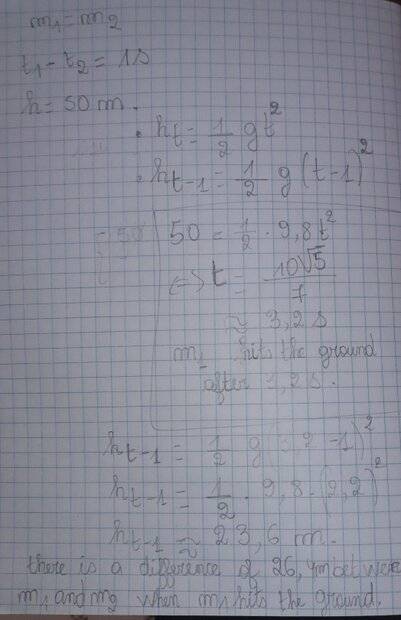 m₁ = m₂
t₁ - t₂ = 1s
h = 50 m.
• hₜ = 1/2 gt²
• hₜ₋₁ = 1/2 g (t-1)²
50 = 1/2 · 9,8t²
<=> t = 10√5 / 7
≈ 3,2 s
m₁ hits the ground
after 3,2 s.
hₜ₋₁ = 1/2 g (3,2 -1)²
hₜ₋₁ = 1/2 · 9,8 · (2,2)²
hₜ₋₁ ≈ 23,6 m.
there is a difference of 26,4m between
m₁ and m₂ when m₁ hits the ground.